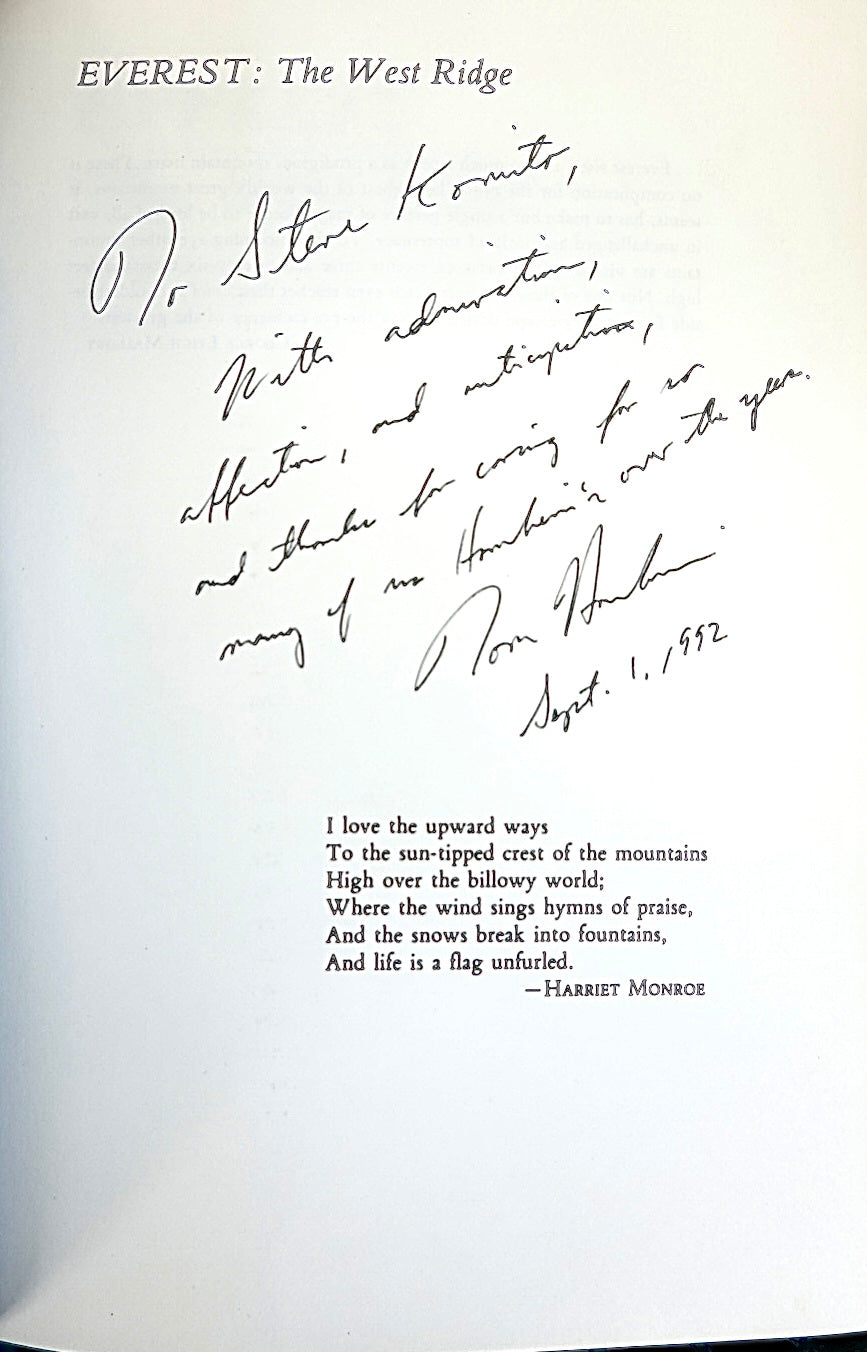 EVEREST: The West Ridge
To Steve Komito,
With admiration,
affection, and anticipation,
and thanks for caring for so
many of us Hornbein's over the years.
Tom Hornbein
Sept. 1, 1992
I love the upward ways
To the sun-tipped crest of the mountains
High over the billowy world;
Where the wind sings hymns of praise,
And the snows break into fountains,
And life is a flag unfurled.
—HARRIET MONROE